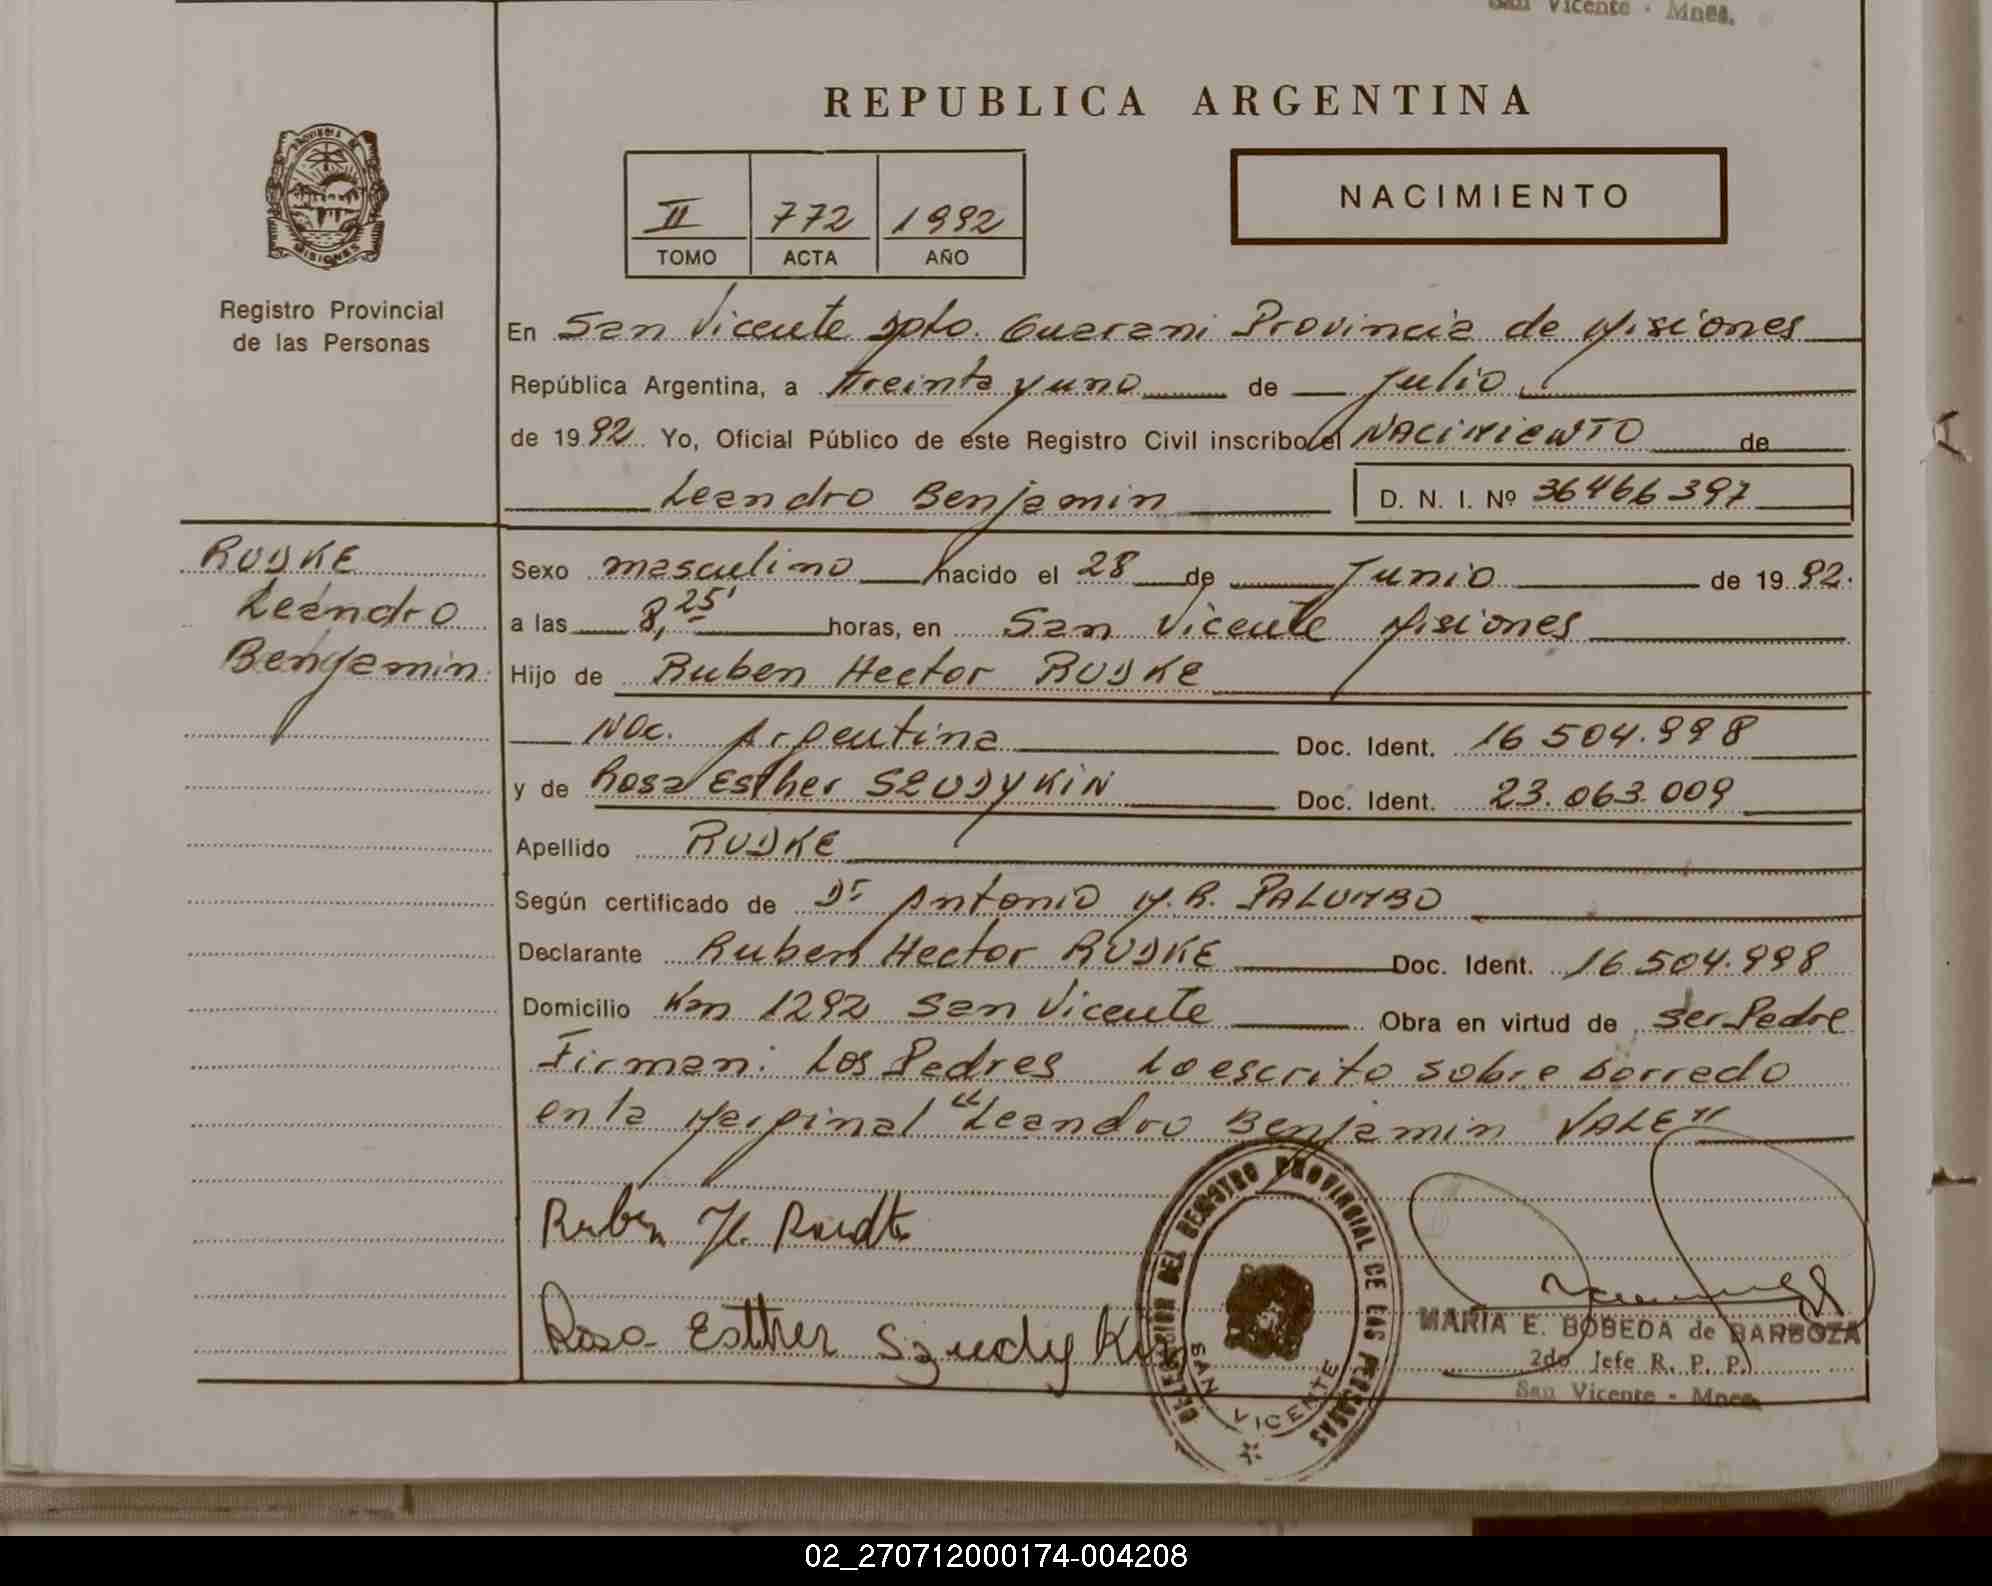 San Vicente - Mnes.
REPUBLICA ARGENTINA
PROVINCIA DE
MISIONES
Registro Provincial
de las Personas
II 772 1992
TOMO ACTA AÑO
NACIMIENTO
En San Vicente Dpto. Guarani Provincia de Misiones
República Argentina, a treinta y uno de Julio
de 1992 Yo, Oficial Público de este Registro Civil inscribo el NACIMIENTO de
Leandro Benjamin D. N. I. Nº 36466397
RUDKE
Leandro
Benjamin
Sexo masculino nacido el 28 de Junio de 1992.
a las 8,25' horas, en San Vicente Misiones
Hijo de Ruben Hector RUDKE
Nac. Argentina Doc. Ident. 16 504.998
y de Rosa Esther SZUDYKIN Doc. Ident. 23.063.009
Apellido RUDKE
Según certificado de Dr Antonio M.R. PALUMBO
Declarante Ruben Hector RUDKE Doc. Ident. 16.504.998
Domicilio Km 1292 San Vicente Obra en virtud de ser Padre
Firman: Los Padres Lo escrito sobre borrado
en la Marginal "Leandro Benjamin VALE"
Ruben H.
Rosa Esther Szudykin
DELEGACION DEL REGISTRO PROVINCIAL DE LAS PERSONAS
SAN VICENTE
MARIA E. BOBEDA de BARBOZA
2do Jefe R. P. P.
San Vicente - Mnes.
02_270712000174-004208